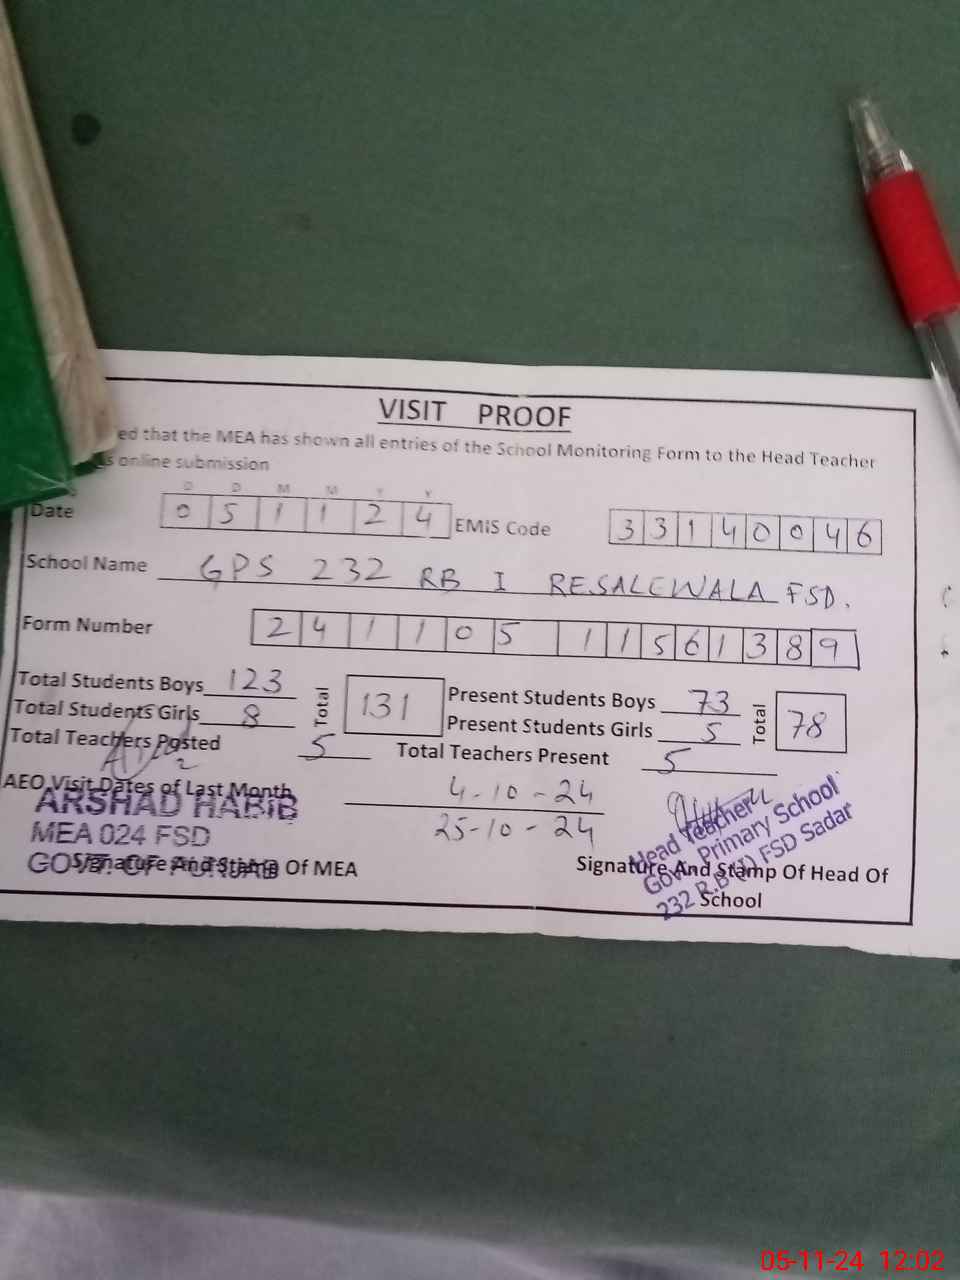 VISIT PROOF
ed that the MEA has shown all entries of the School Monitoring Form to the Head Teacher
s online submission
D D M M Y Y
Date 0 5 1 1 2 4 EMIS Code 3 3 1 4 0 0 4 6
School Name GPS 232 RB I RESALEWALA FSD.
Form Number 2 4 1 1 0 5 1 1 5 6 1 3 8 9
Total Students Boys 123 Total 131 Present Students Boys 73 Total 78
Total Students Girls 8 Present Students Girls 5
Total Teachers Posted 5 Total Teachers Present 5
AEO Visit Dates of Last Month 4-10-24
25-10-24
ARSHAD HABIB
MEA 024 FSD
GOVT. OF PUNJAB
Signature And Stamp Of MEA
Head Teacher
Govt. Primary School
232 R.B (I) FSD Sadar
Signature And Stamp Of Head Of
School
05-11-24 12:02